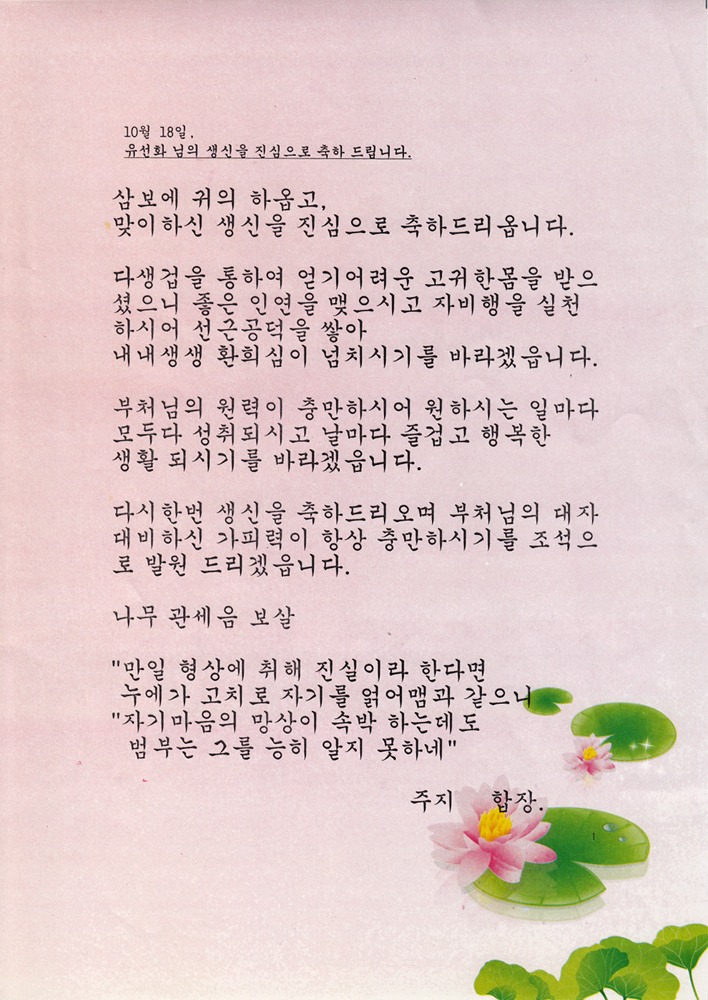 10월 18일,
유선화 님의 생신을 진심으로 축하 드립니다.
삼보에 귀의 하옵고,
맞이하신 생신을 진심으로 축하드리옵니다.
다생겁을 통하여 얻기어려운 고귀한몸을 받으
셨으니 좋은 인연을 맺으시고 자비행을 실천
하시어 선근공덕을 쌓아
내내생생 환희심이 넘치시기를 바라겠읍니다.
부처님의 원력이 충만하시어 원하시는 일마다
모두다 성취되시고 날마다 즐겁고 행복한
생활 되시기를 바라겠읍니다.
다시한번 생신을 축하드리오며 부처님의 대자
대비하신 가피력이 항상 충만하시기를 조석으
로 발원 드리겠읍니다.
나무 관세음 보살
"만일 형상에 취해 진실이라 한다면
누에가 고치로 자기를 얽어맴과 같으니
"자기마음의 망상이 속박 하는데도
범부는 그를 능히 알지 못하네"
주지 합장.
1